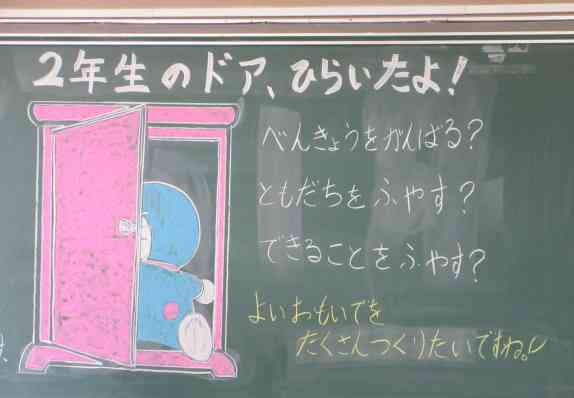 2年生のドア、ひらいたよ!
べんきょうをがんばる?
ともだちをふやす?
できることをふやす?
よいおもいでを
たくさんつくりたいですね。